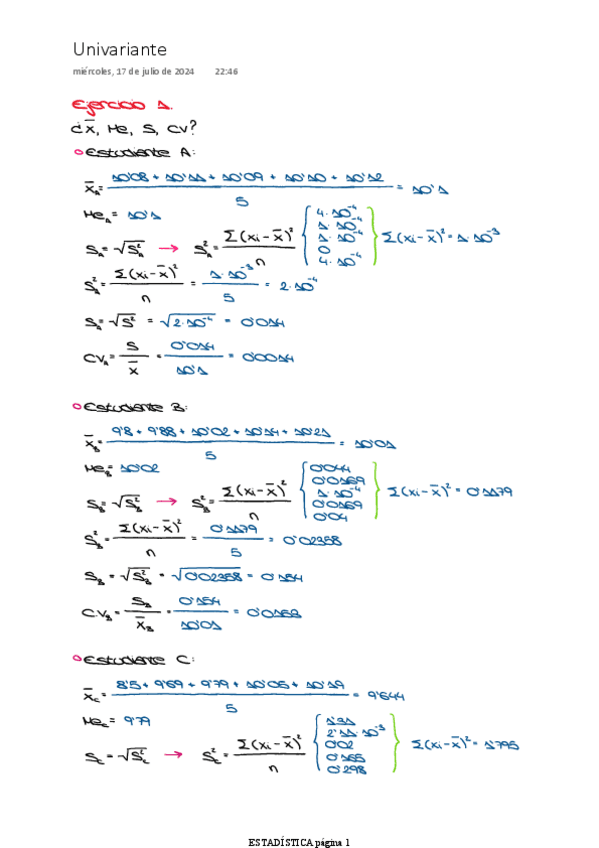 Univariante
miércoles, 17 de julio de 2024 22:46
Ejercicio 1.
¿x̄, Me, S, CV?
Estudiante A:
x̄_A = (10'08 + 10'11 + 10'09 + 10'10 + 10'12) / 5 = 10'1
Me_A = 10'1
S_A = √S²_A → S²_A = Σ(xi - x̄)² / n { 4·10⁻⁴ 1·10⁻⁴ 1·10⁻⁴ 0 4·10⁻⁴ } Σ(xi - x̄)² = 1·10⁻³
S²_A = Σ(xi - x̄)² / n = 1·10⁻³ / 5 = 2·10⁻⁴
S_A = √S² = √2·10⁻⁴ = 0'014
CV_A = S / x̄ = 0'014 / 10'1 = 0'0014
Estudiante B:
x̄_B = (9'8 + 9'88 + 10'02 + 10'14 + 10'21) / 5 = 10'01
Me_B = 10'02
S_B = √S²_B → S²_B = Σ(xi - x̄)² / n { 0'044 0'0169 1·10⁻⁴ 0'0169 0'04 } Σ(xi - x̄)² = 0'1179
S²_B = Σ(xi - x̄)² / n = 0'1179 / 5 = 0'02358
S_B = √S²_B = √0'02358 = 0'154
C.V_B = S_B / x̄_B = 0'154 / 10'01 = 0'0153
Estudiante C:
x̄_C = (8'5 + 9'69 + 9'79 + 10'05 + 10'19) / 5 = 9'644
Me_C = 9'79
S_C = √S²_C → S²_C = Σ(xi - x̄)² / n { 1'31 2'11·10⁻³ 0'02 0'165 0'298 } Σ(xi - x̄)² = 1'795
ESTADÍSTICA página 1